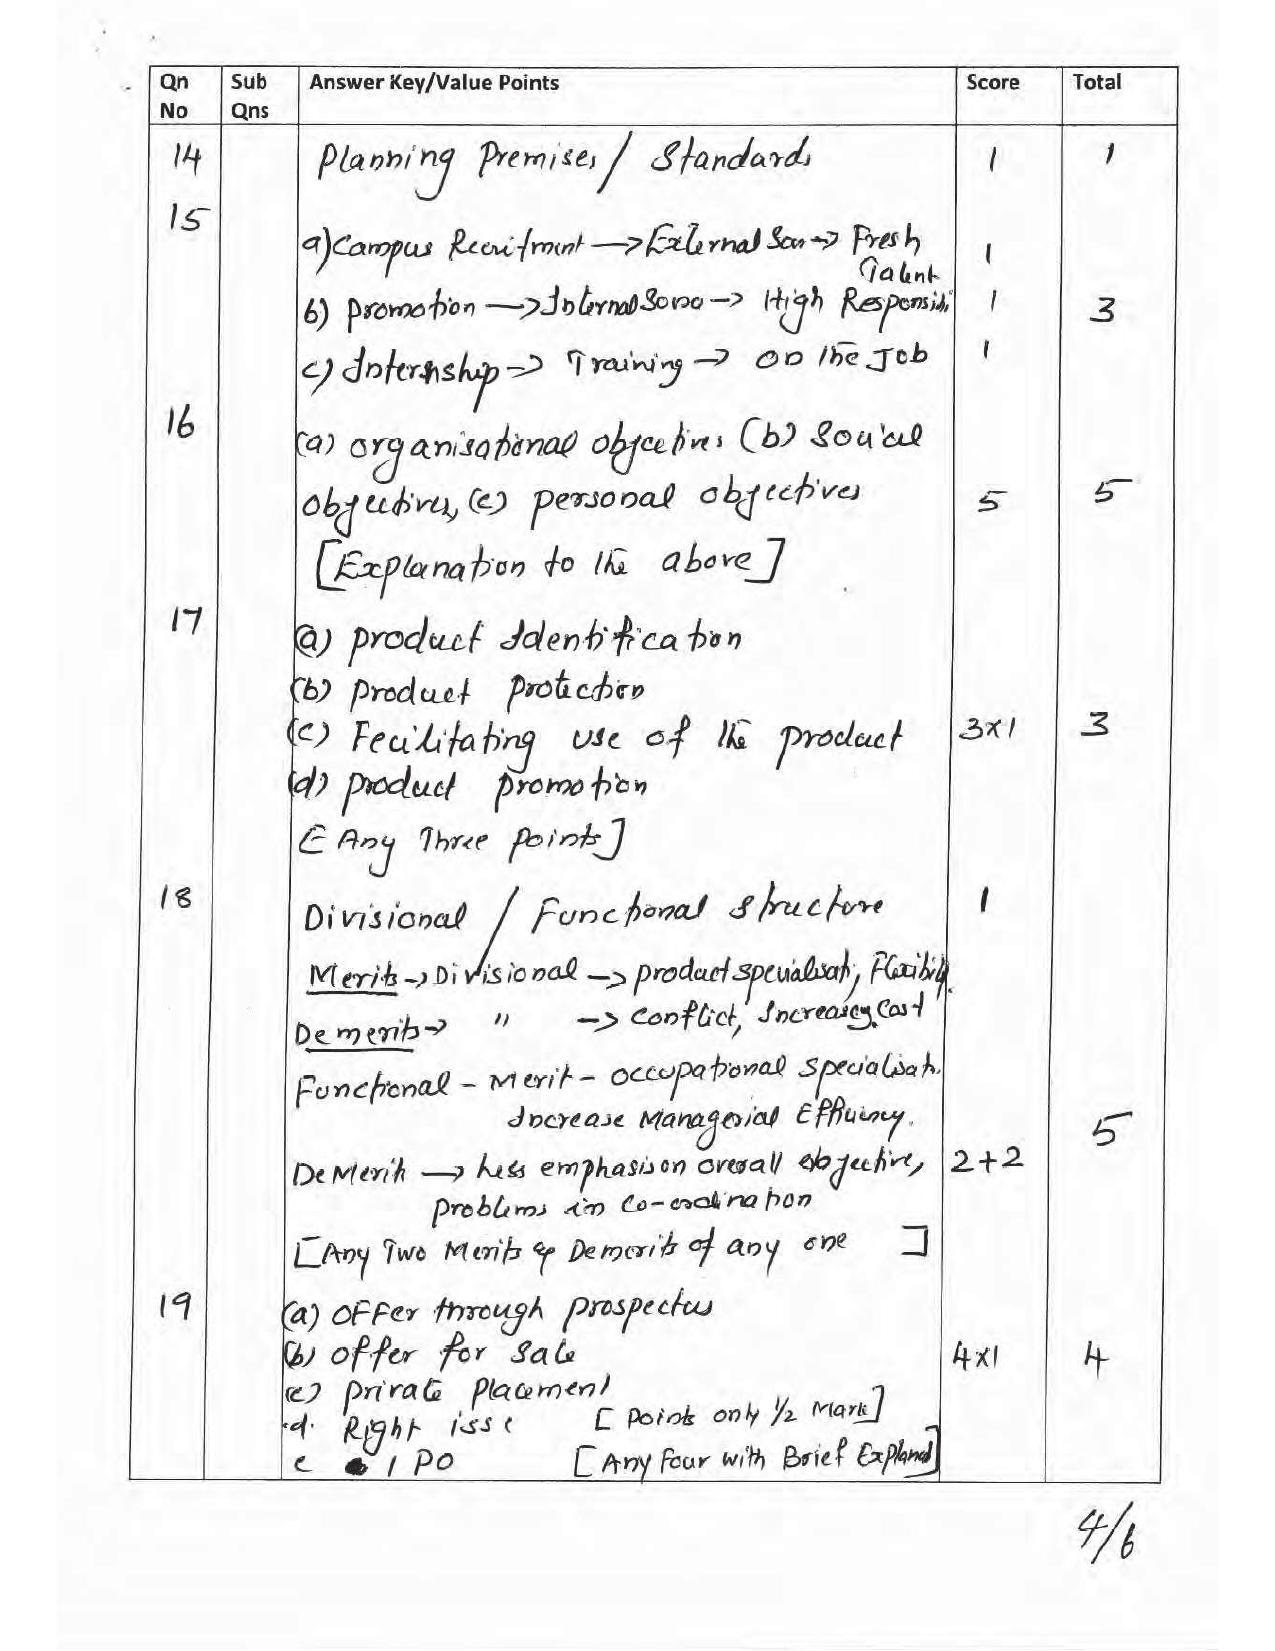 Qn No Sub Qns Answer Key/Value Points Score Total
14 Planning Premises / Standards 1 1
15
a) Campus Recruitment → External → Fresh Talent 1
b) Promotion → Internal → High 1 3
c) Internship → Training → On the Job 1
16
(a) Organisational objectives (b) Social
objectives, (c) personal objectives 5 5
[Explanation to the above]
17
(a) product Identification
(b) product protection
(c) Fecilitating use of the product 3x1 3
(d) product promotion
[Any Three Points]
18 Divisional / Functional structure 1
Merits → Divisional → product , Flexibility.
Demerits → " → Conflict, Increasing Cost
Functional - Merit - occupational
Increase Managerial Efficiency. 5
DeMerits → Less emphasis on overall objective, 2+2
problems in Co-ordination
[Any Two Merits & Demerits of any one ]
19 (a) OFFer through prospectus
(b) offer for sale 4x1 4
(c) private Placement
d. Right [Points only 1/2 Mark]
e IPO [Any Four with Brief ]
4/6